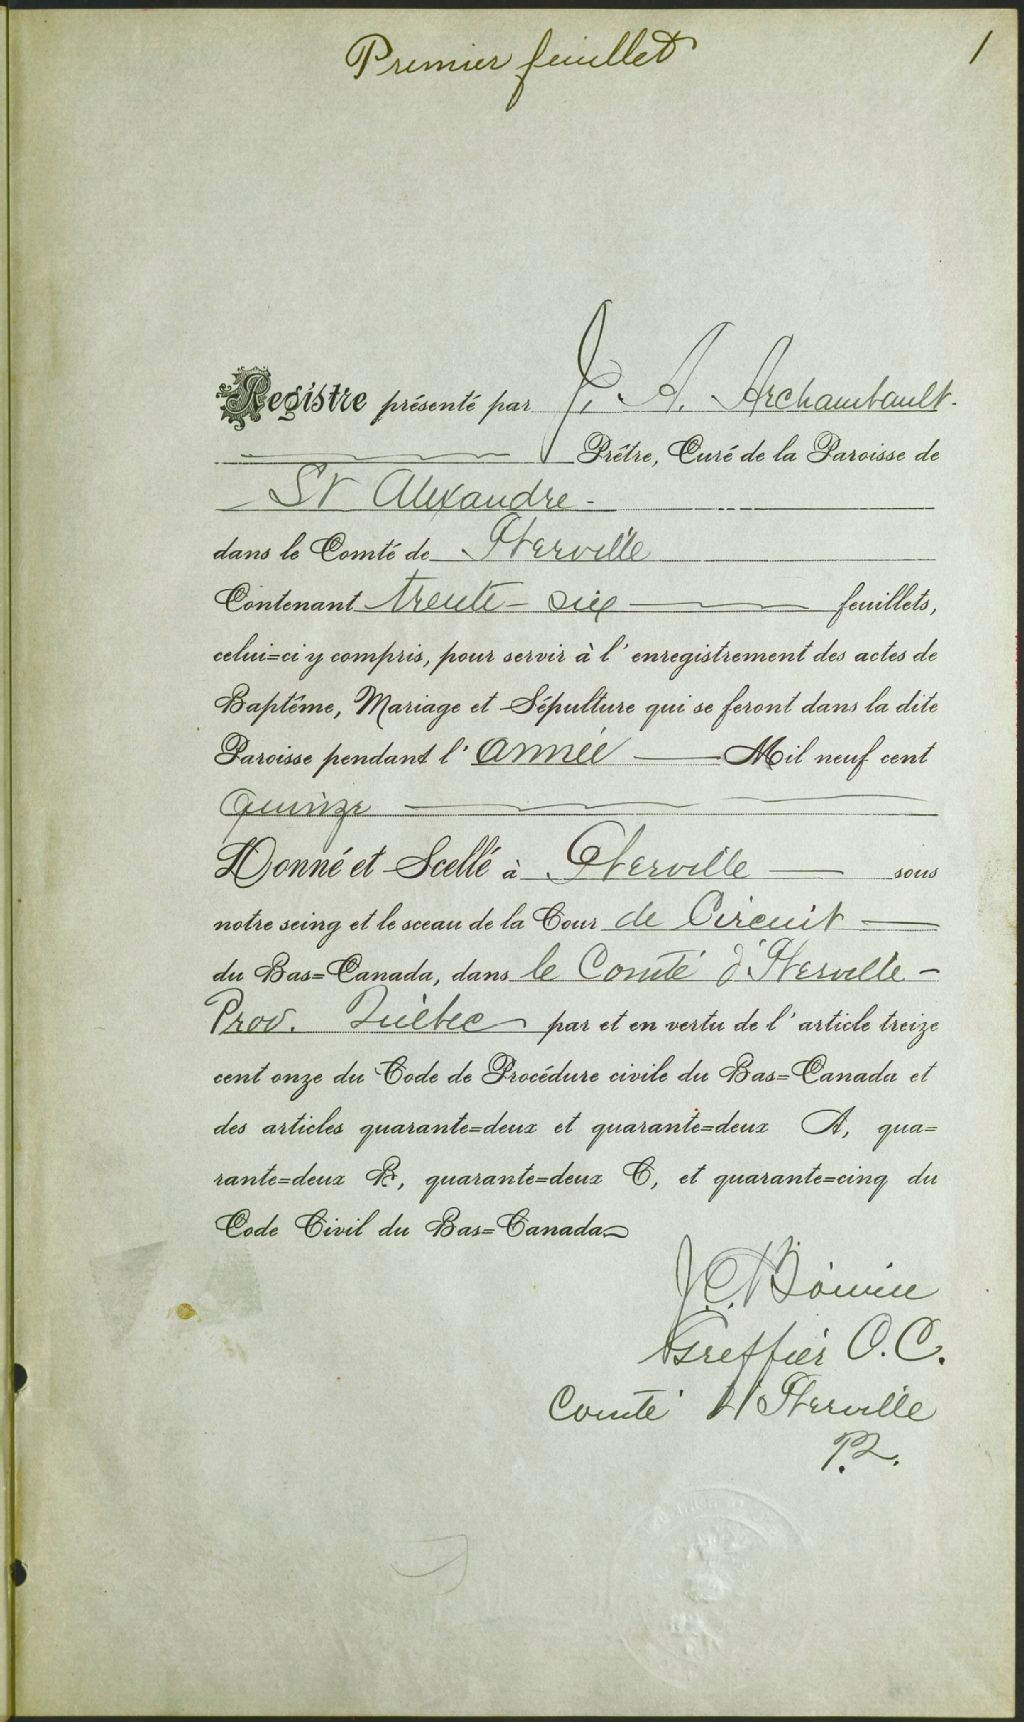 Premier feuillet
1
Registre présenté par J. A. Archambault.
Prêtre, Curé de la Paroisse de
St Alexandre -
dans le Comté de Iberville
Contenant trente-six feuillets,
celui=ci y compris, pour servir à l'enregistrement des actes de
Baptême, Mariage et Sépulture qui se feront dans la dite
Paroisse pendant l'année Mil neuf cent
quinze
Donné et Scellé à Iberville sous
notre seing et le sceau de la Cour de Circuit
du Bas=Canada, dans le Comté d'Iberville -
Prov. Québec par et en vertu de l'article treize
cent onze du Code de Procédure civile du Bas=Canada et
des articles quarante=deux et quarante=deux A, qua=
rante=deux B, quarante=deux C, et quarante=cinq du
Code Civil du Bas=Canada
J.C. Boivin
Greffier C.C.
Comté d'Iberville
P.Q.